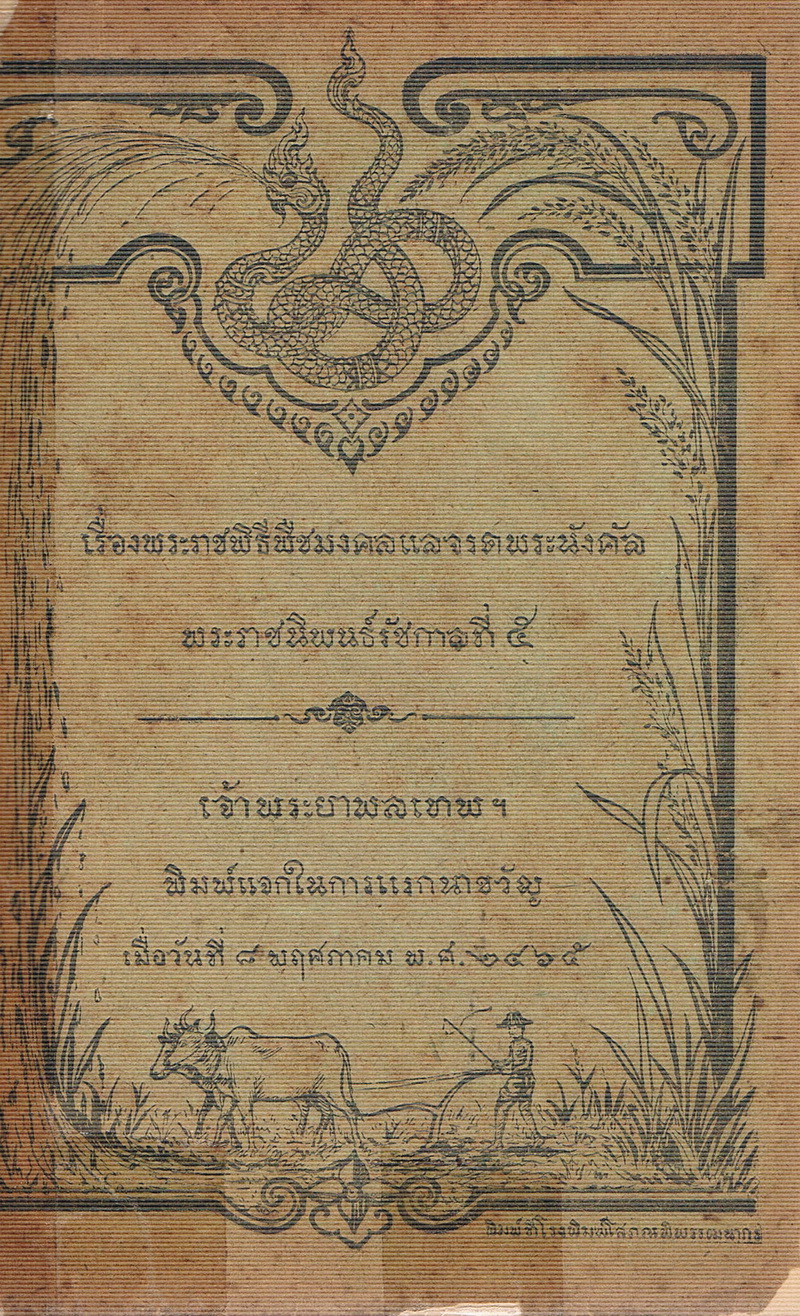 เรื่องพระราชพิธีพืชมงคลแลจรดพระนังคัล
พระราชนิพนธ์รัชกาลที่ ๕
เจ้าพระยาพลเทพ ฯ
พิมพ์แจกในการแรกนาขวัญ
เมื่อวันที่ ๘ พฤศภาคม พ.ศ. ๒๔๖๕
พิมพ์ที่โรงพิมพ์โสภณพิพรรฒนากร